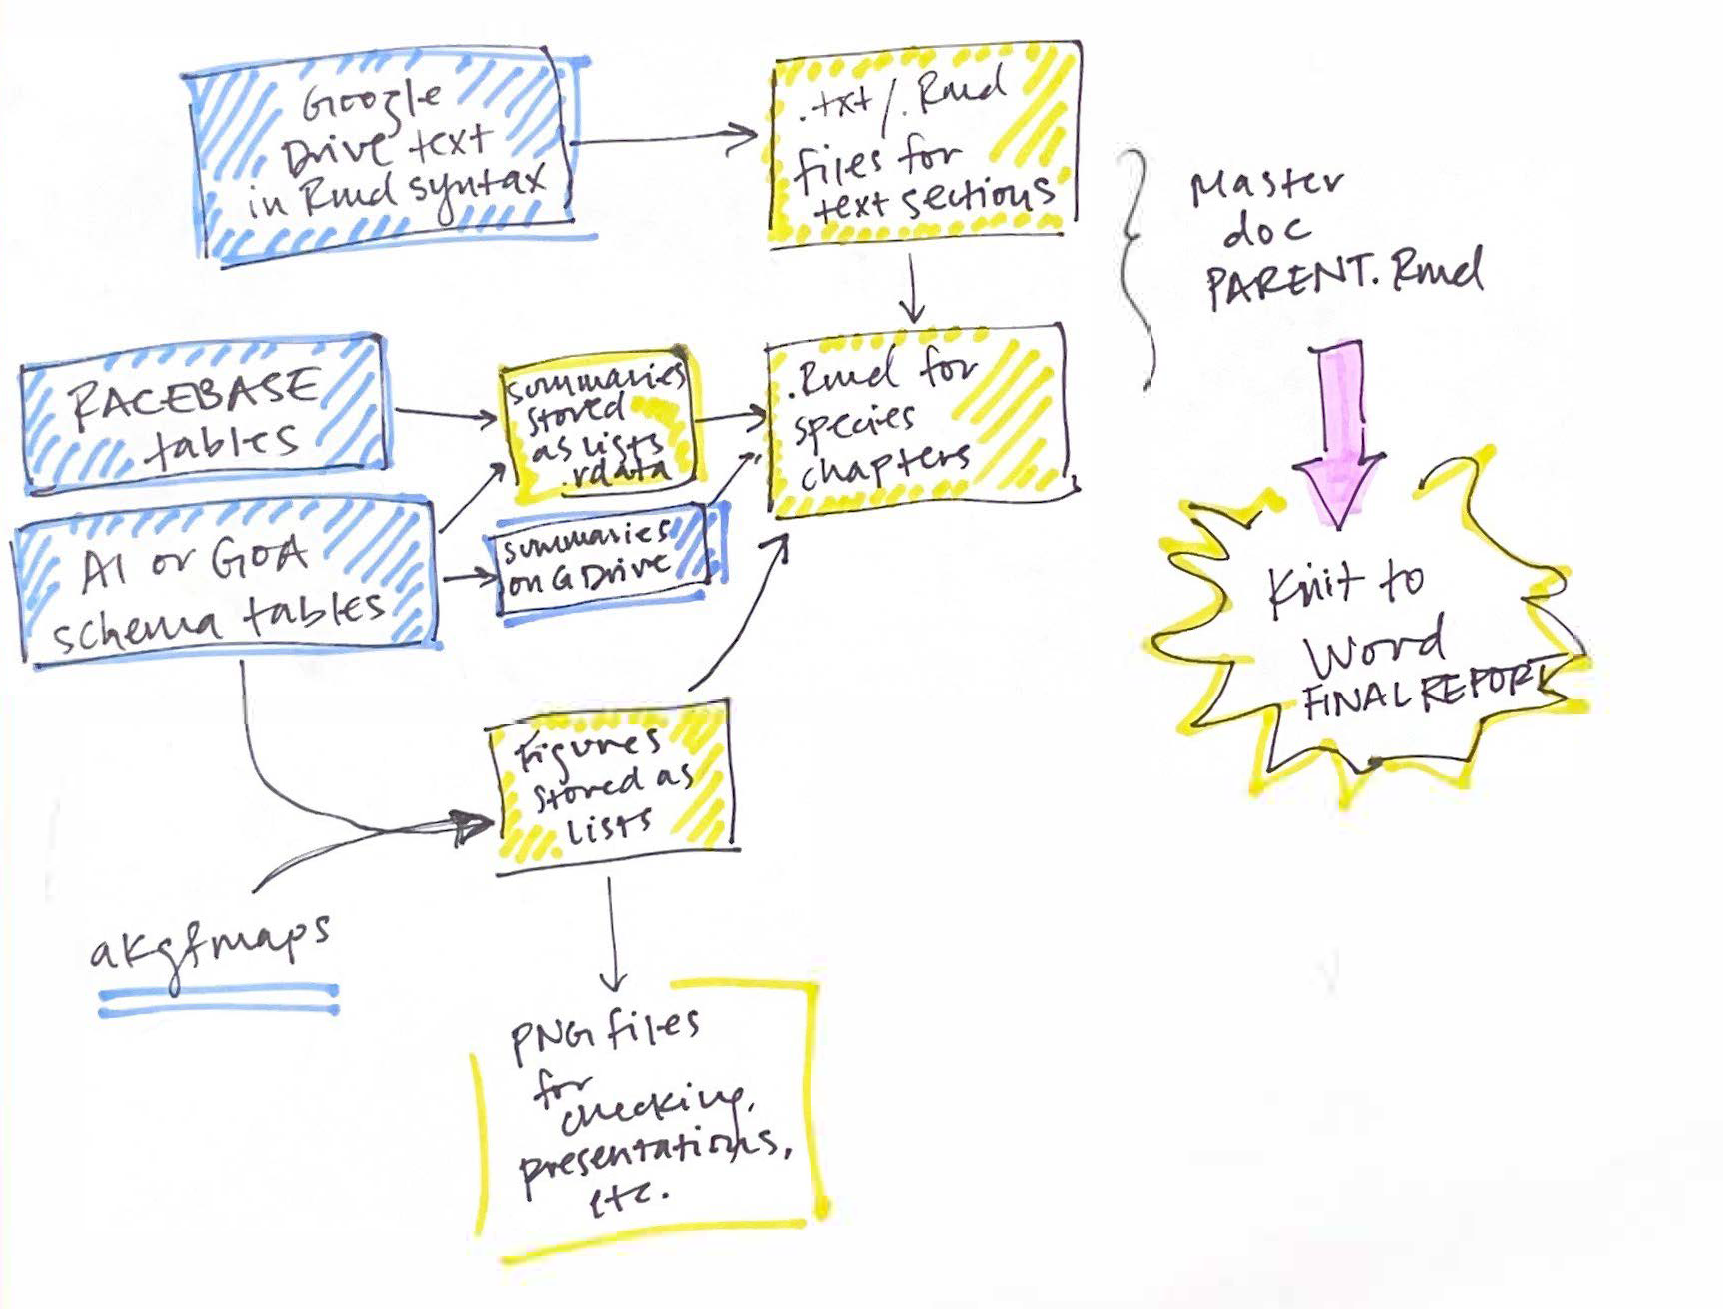 Google
Drive text
in Rmd syntax
.txt/.Rmd
files for
text sections
Master
doc
PARENT.Rmd
RACEBASE
tables
summaries
stored
as lists
.rdata
.Rmd for
species
chapters
AI or GOA
schema tables
summaries
on GDrive
Knit to
Word
FINAL REPORT
Figures
stored as
lists
akgfmaps
PNG files
for
checking,
presentations,
etc.